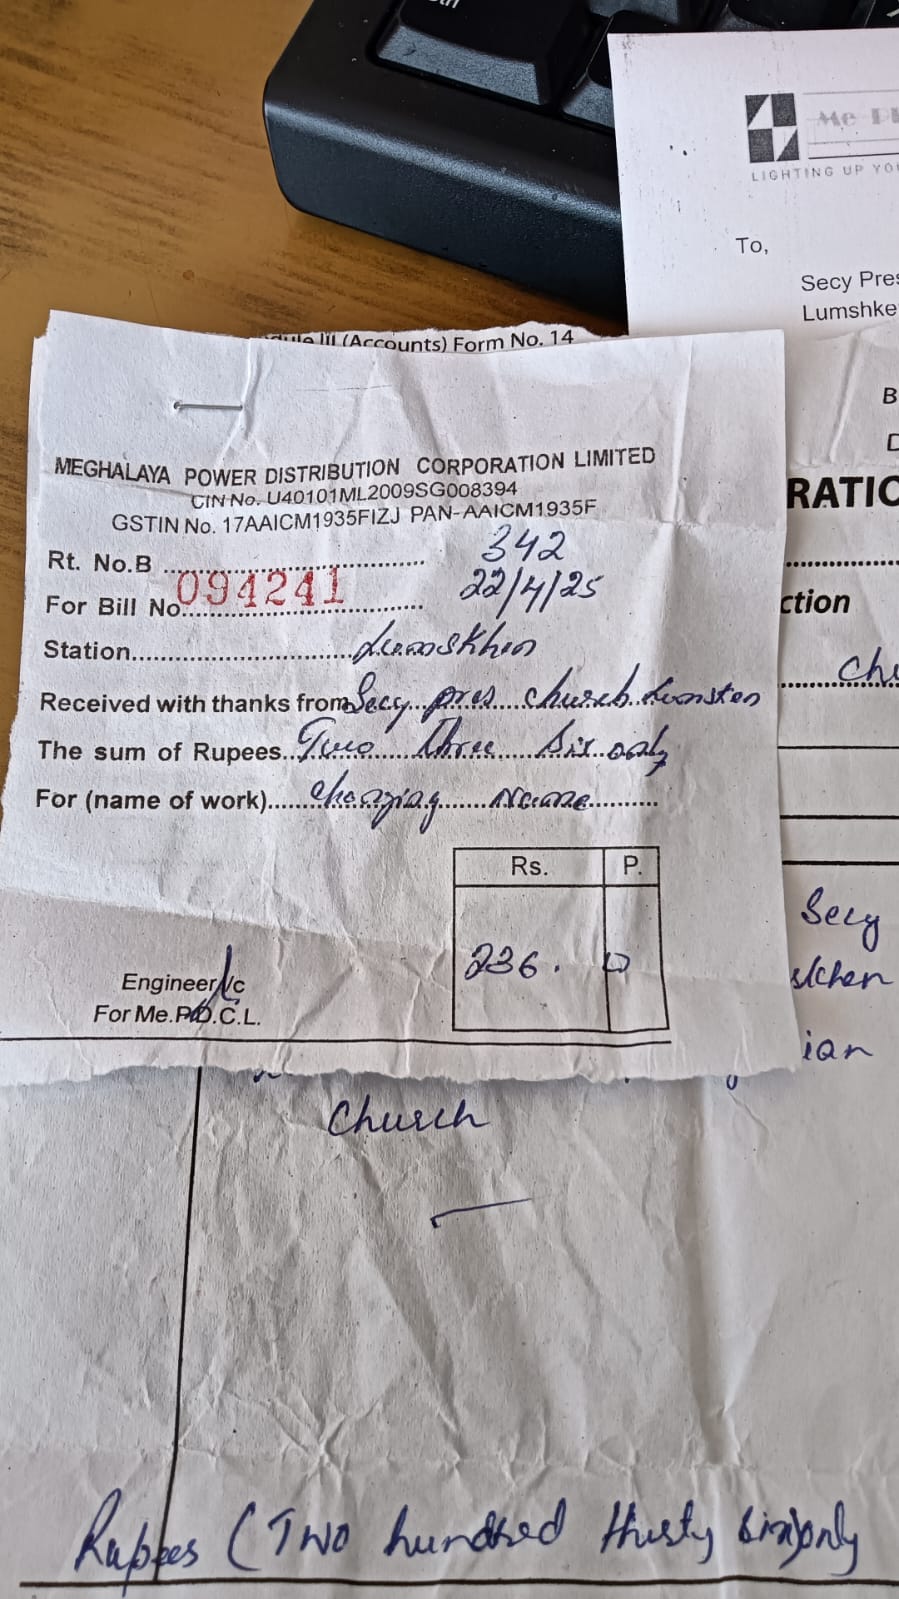 LIGHTING UP YO
To,
Secy Pres
Lumshke
(Accounts) Form No. 14
MEGHALAYA POWER DISTRIBUTION CORPORATION LIMITED
CIN No. U40101ML2009SG008394
GSTIN No. 17AAICM1935FIZJ PAN-AAICM1935F
342
Rt. No.B ..............................
094241
22/4/25
For Bill No..............................
Station..............................Lumskhen
Received with thanks from Secy pres church Lumsken
The sum of Rupees..Two Three Six only
For (name of work)......Changing Name..........
Rs. P.
236.
Engineer I/c
For Me.P.D.C.L.
RATIO
ction
Secy
skhen
ian
Church
Rupees (Two hundred thirty six) only